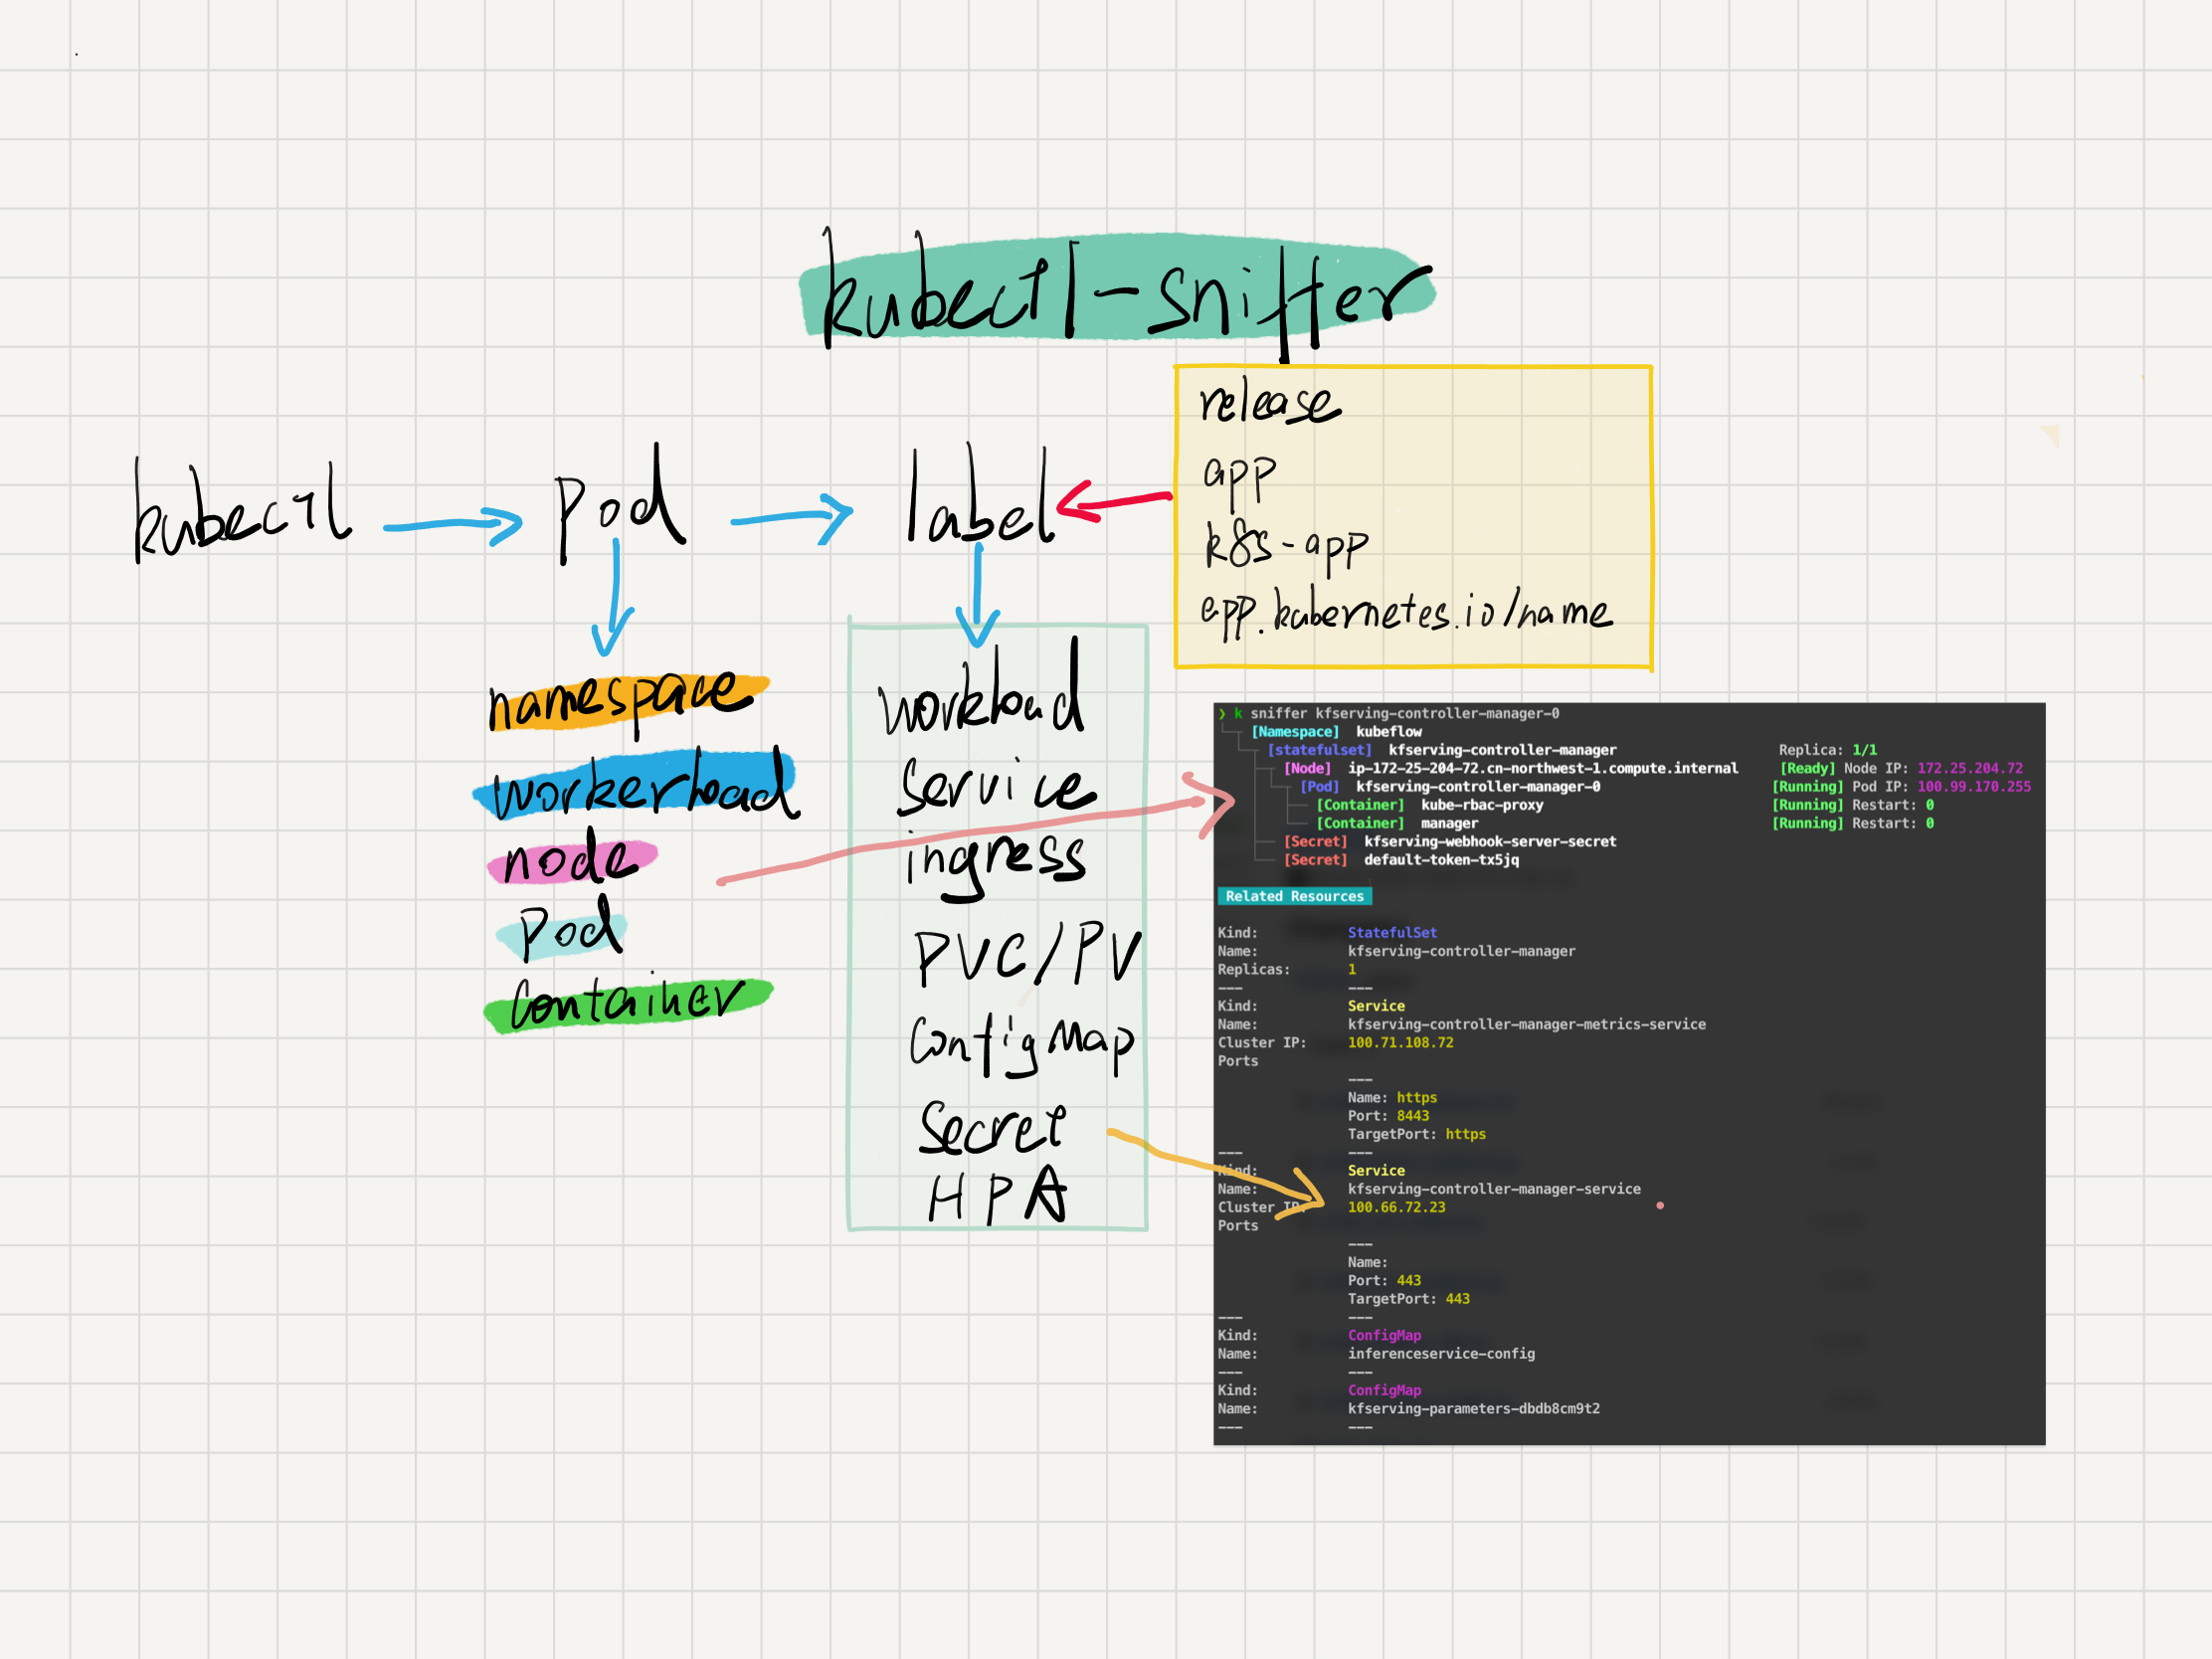 kubectl-sniffer
release
app
k8s-app
app.kubernetes.io/name
kubectl
Pod
label
namespace
workerload
node
Pod
Container
workload
Service
ingress
PVC/PV
ConfigMap
Secret
HPA
❯ k sniffer kfserving-controller-manager-0
[Namespace] kubeflow
[statefulset] kfserving-controller-manager Replica: 1/1
[Node] ip-172-25-204-72.cn-northwest-1.compute.internal [Ready] Node IP: 172.25.204.72
[Pod] kfserving-controller-manager-0 [Running] Pod IP: 100.99.170.255
[Container] kube-rbac-proxy [Running] Restart: 0
[Container] manager [Running] Restart: 0
[Secret] kfserving-webhook-server-secret
[Secret] default-token-tx5jq
Related Resources
Kind: StatefulSet
Name: kfserving-controller-manager
Replicas: 1
--- ---
Kind: Service
Name: kfserving-controller-manager-metrics-service
Cluster IP: 100.71.108.72
Ports
---
Name: https
Port: 8443
TargetPort: https
--- ---
Kind: Service
Name: kfserving-controller-manager-service
Cluster IP: 100.66.72.23
Ports
---
Name:
Port: 443
TargetPort: 443
--- ---
Kind: ConfigMap
Name: inferenceservice-config
--- ---
Kind: ConfigMap
Name: kfserving-parameters-dbdb8cm9t2
--- ---